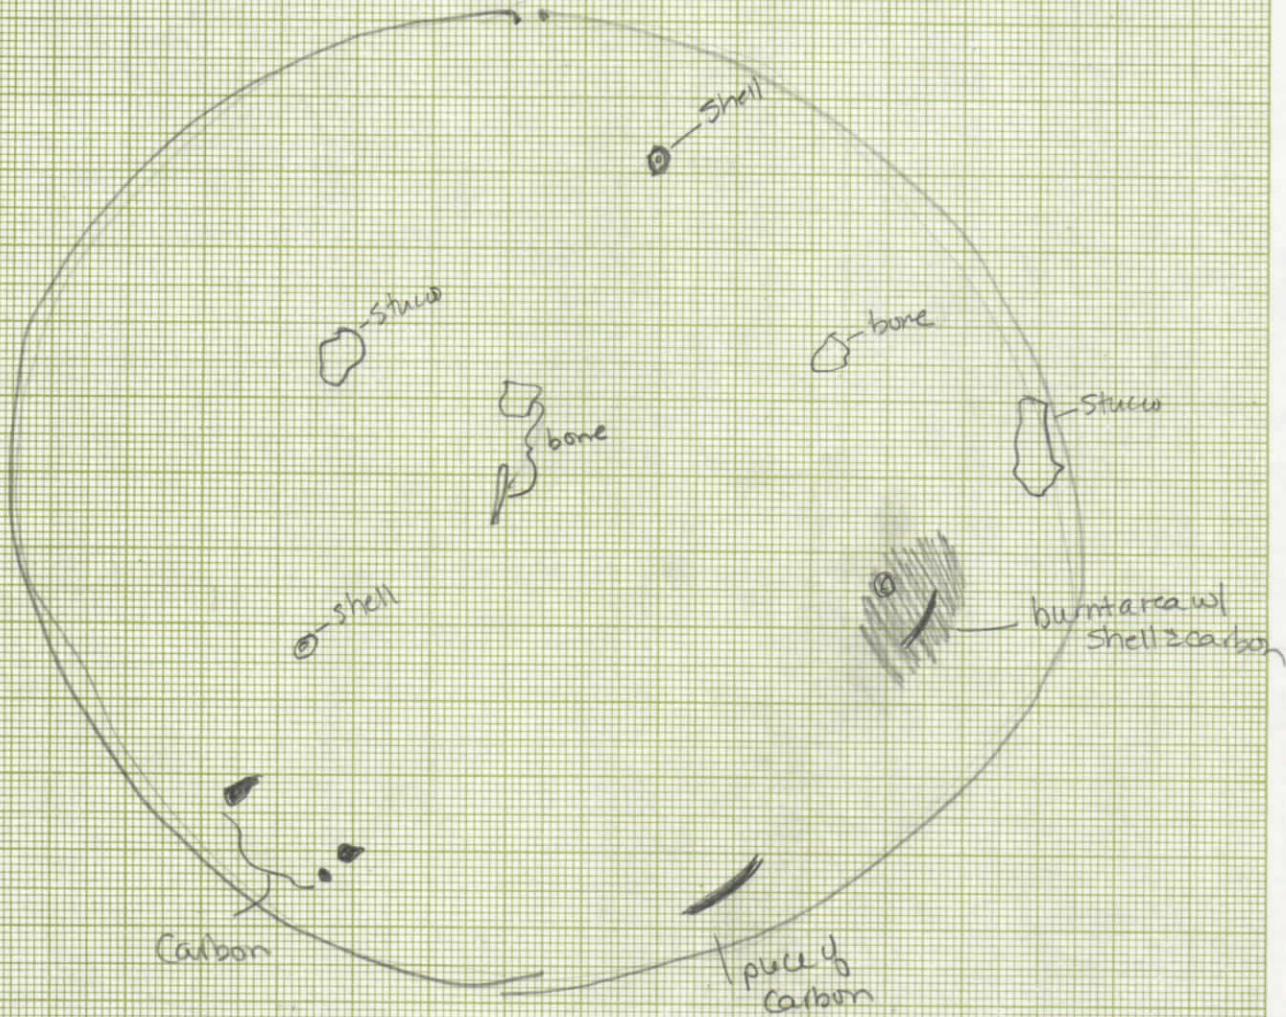 Shell
stucco
bone
Stucco
bone
shell
burnt area w/
shell & carbon
Carbon
piece of
carbon